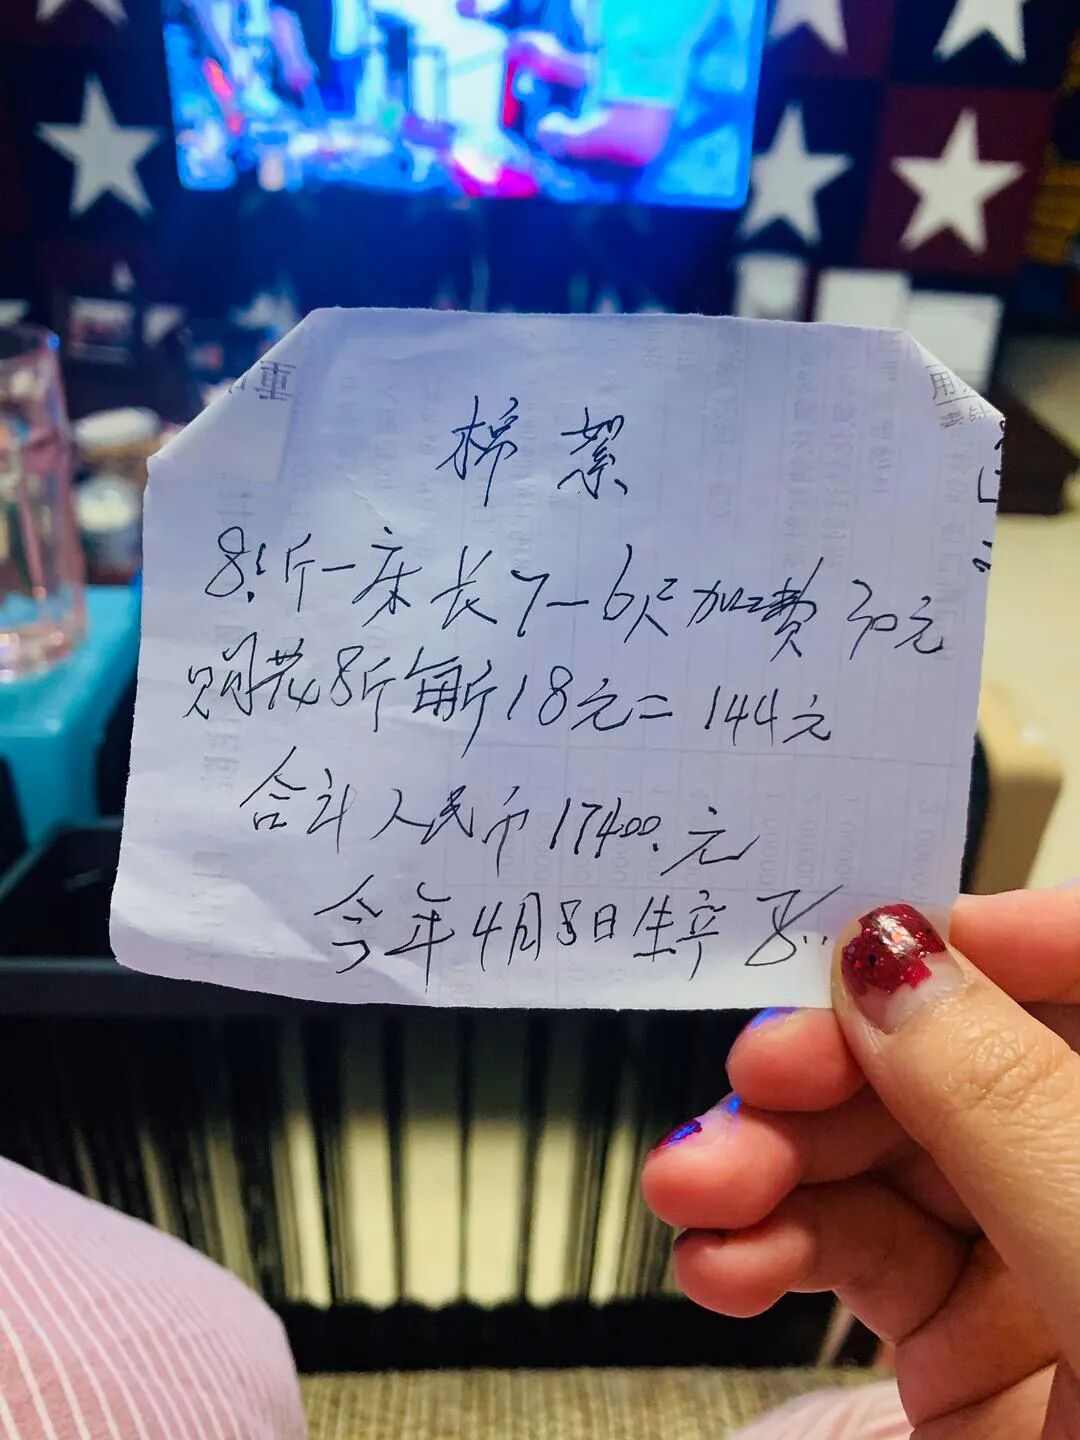 棉絮
8斤一床长7—6尺加工费30元
购花8斤每斤18元=144元
合计人民币17400.元
今年4月8日生产
重
用